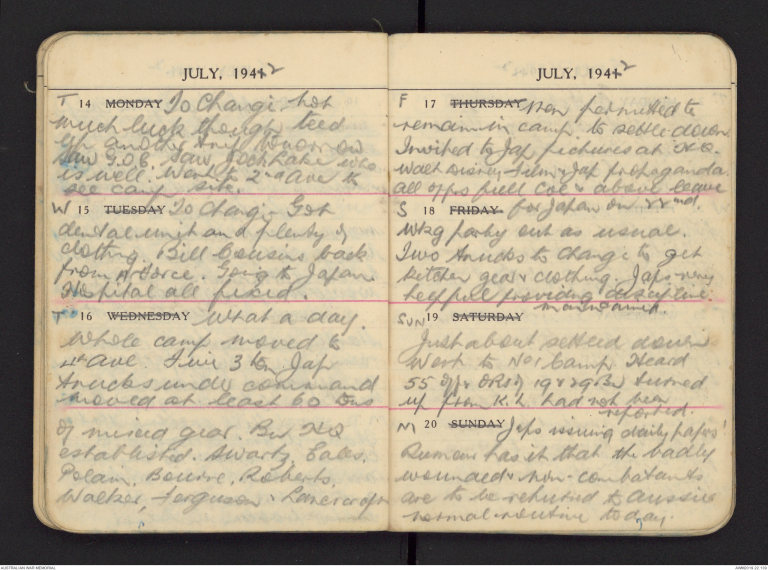 JULY, 1942
T 14 MONDAY To Changi. Not
much luck though teed
up another trip tomorrow
Saw G.O.C. Saw Jock Lake who
is well. Went to 2nd Ave to
see camp site.
W 15 TUESDAY To Changi - Got
dental unit and plenty of
clothing. Bill Cousens back
from A Force. Going to Japan
Hospital all fixed.
T 16 WEDNESDAY What a day.
Whole camp moved to
4th Ave. Five 3 ton Jap
trucks under command
moved at least 60 tons
of mixed gear. Bn HQ
established. Swartz, Eales,
Polain, Bourne, Roberts,
Walker, Ferguson & Lancroft
JULY, 1942
F 17 THURSDAY Men permitted to
remain in camp to settle down
Invited to Jap pictures at HQ.
Walt Disney Film & Jap propaganda.
all offrs full Col & above leave
S 18 FRIDAY for Japan on 22nd.
Wkg party out as usual.
Two trucks to Changi to get
kitchen gear & clothing. Japs very
helpful providing discipline
maintained.
SUN 19 SATURDAY
Just about settled down
Went to No 1 Camp Heard
55 offrs & ORs of 19 & 29 Bn turned
up from K.L. had not been
reported.
M 20 SUNDAY Japs issuing daily papers!
Rumour has it that the badly
wounded & non-combatants
are to be returned to Aussie
normal routine today.
AUSTRALIAN WAR MEMORIAL